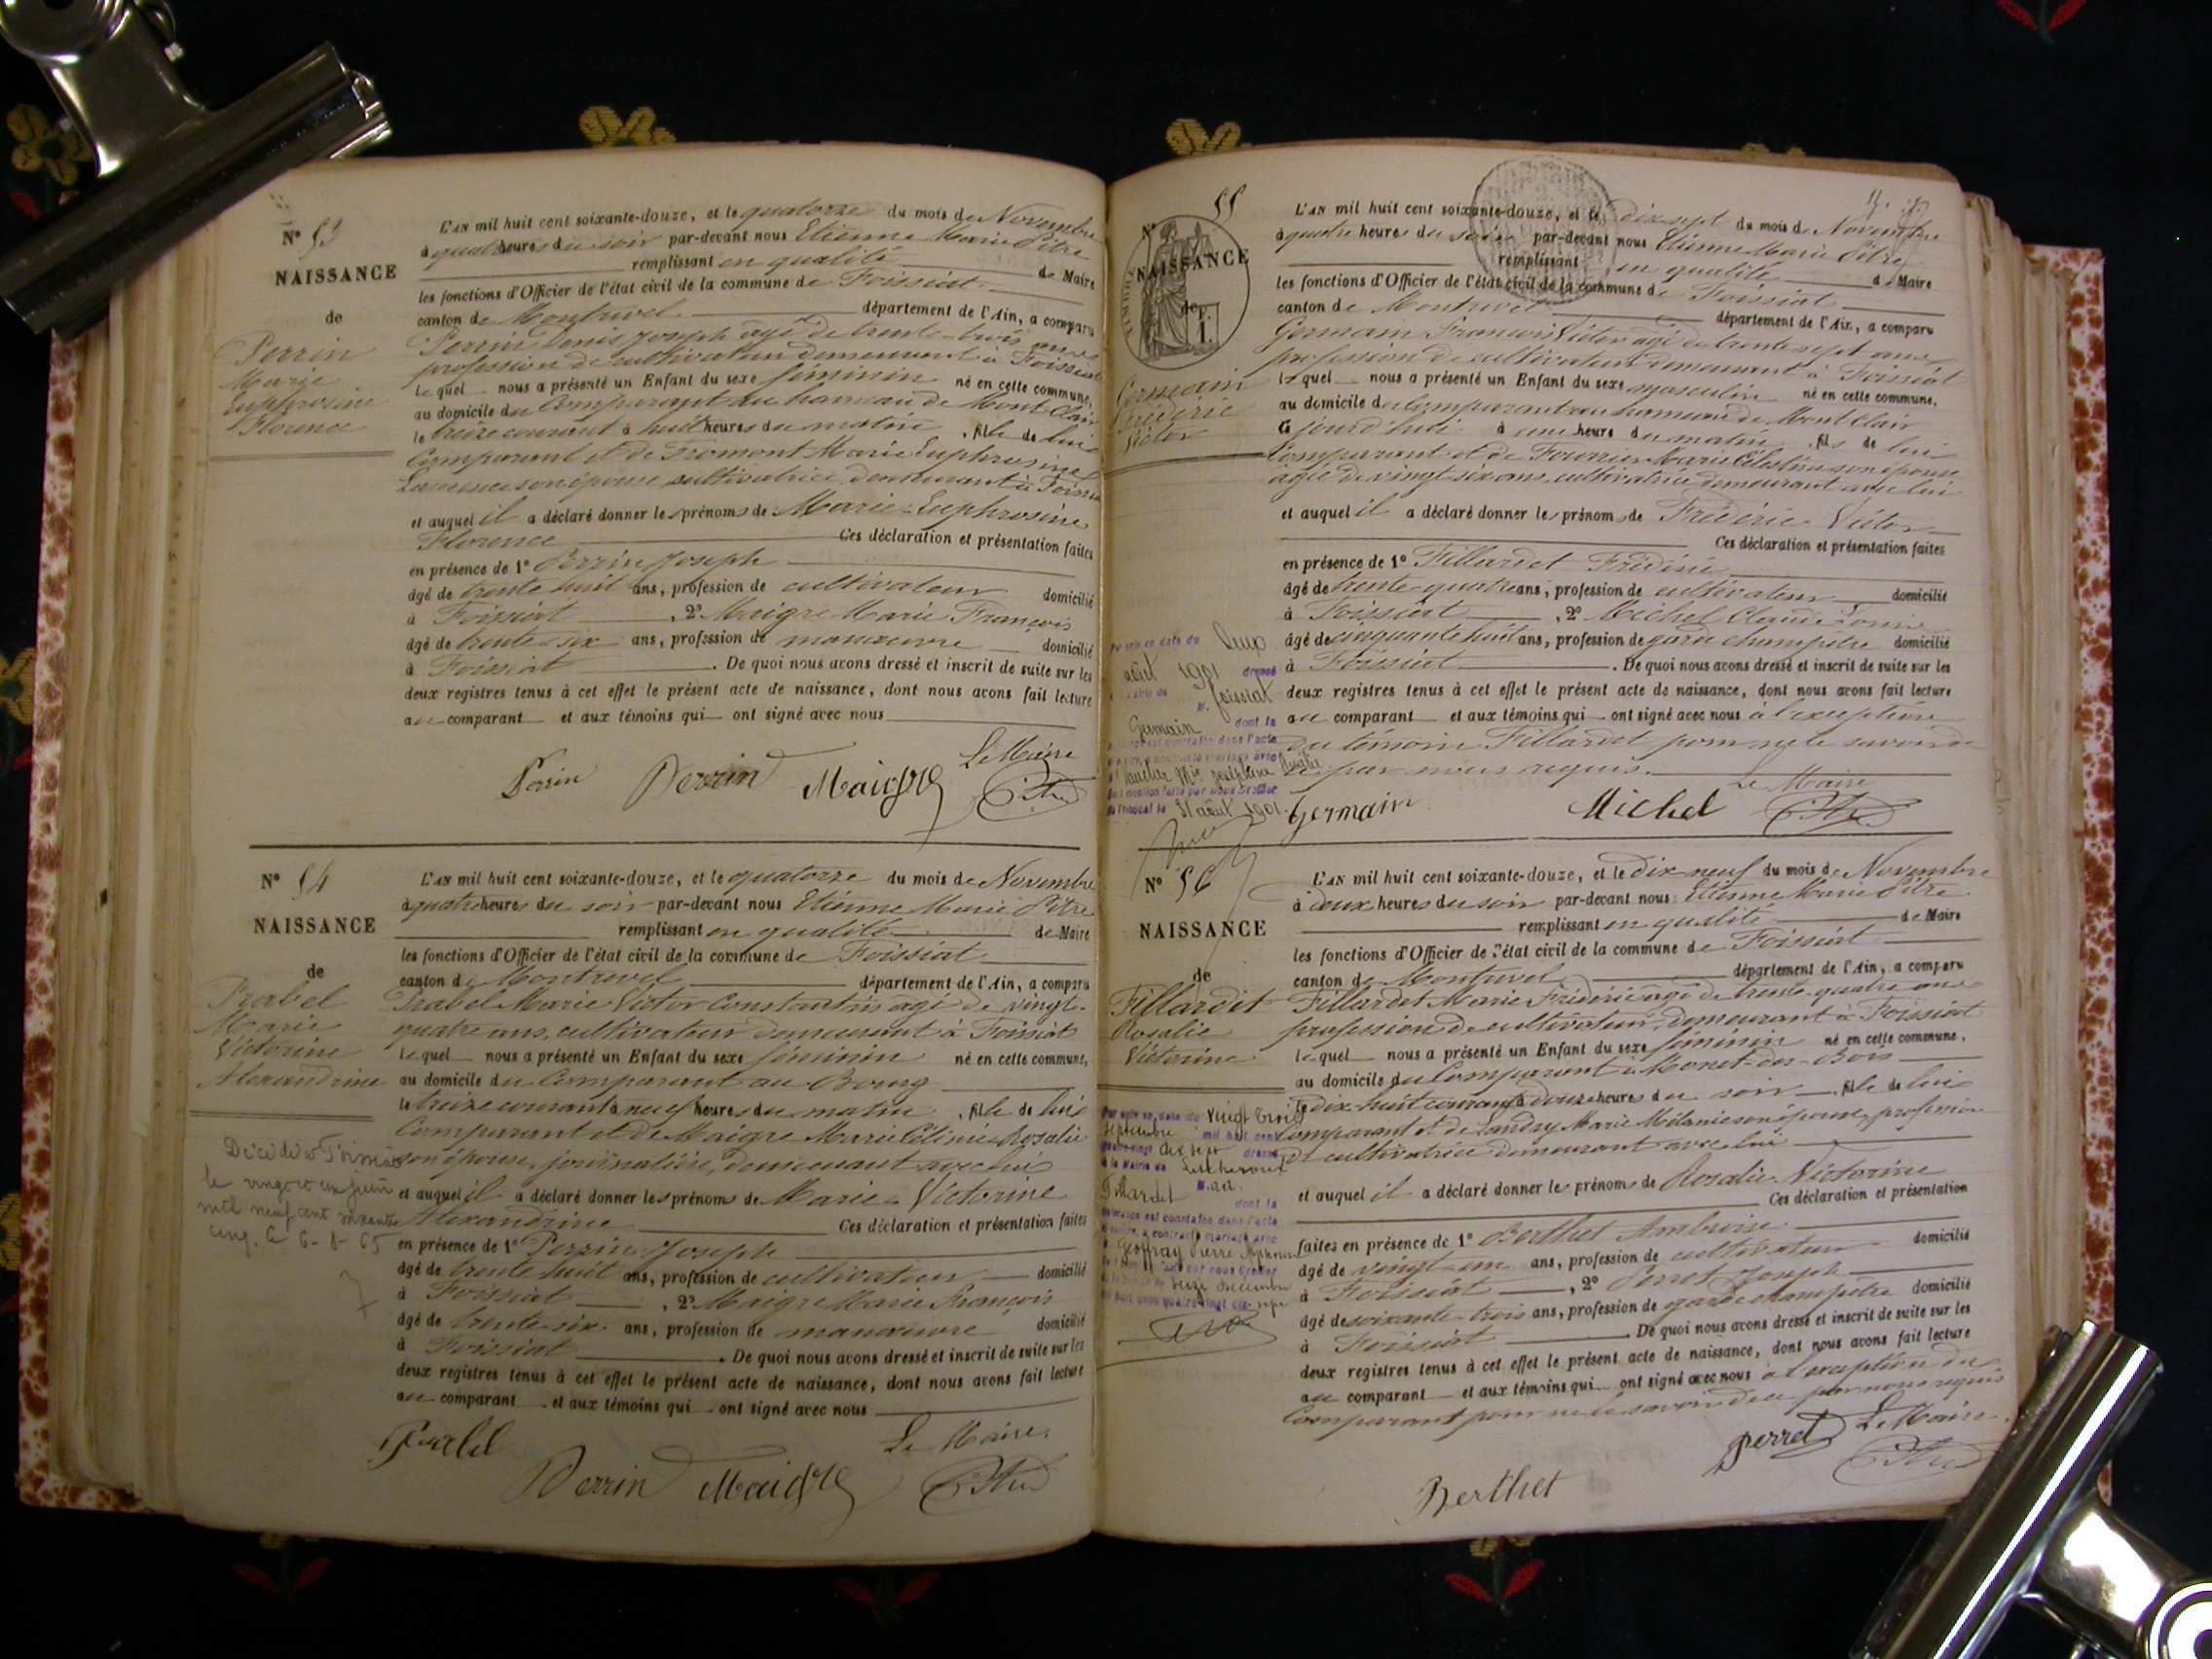 Nº 53
NAISSANCE
de
Perrin
Marie
Euphrosine
Florence
L'AN mil huit cent soixante-douze, et le quatorze du mois de Novembre
à quatre heures du soir par-devant nous Etienne Marie Pitre
remplissant en qualité de Maire
les fonctions d'Officier de l'état civil de la commune de Foissiat
canton de Montrevel département de l'Ain, a comparu
Perrin Denis Joseph agé de trente-trois ans
profession de cultivateur demeurant à Foissiat
lequel nous a présenté un Enfant du sexe féminin né en cette commune,
au domicile du Comparant au hameau de Mont Clair
le treize courant à huit heures du matin, fille de lui
Comparant et de Fromont Marie Euphrosine
son épouse cultivatrice, demeurant à
et auquel il a déclaré donner les prénoms de Marie-Euphrosine
Florence Ces déclaration et présentation faites
en présence de 1º Perrin Joseph
âgé de trente huit ans, profession de cultivateur domicilié
à Foissiat, 2º Maigre Marie François
âgé de trente-six ans, profession de manœuvre domicilié
à Foissiat. De quoi nous avons dressé et inscrit de suite sur les
deux registres tenus à cet effet le présent acte de naissance, dont nous avons fait lecture
au comparant et aux témoins qui ont signé avec nous
Le Maire
Perrin Perrin Maigre
Nº 54
NAISSANCE
de
Prabel
Marie
Victorine
Alexandrine
Décédée à Foissiat
le vingt et un juin
mil neuf cent soixante
cinq. Le 6-8-65
L'AN mil huit cent soixante-douze, et le quatorze du mois de Novembre
à quatre heures du soir par-devant nous Etienne Marie Pitre
remplissant en qualité de Maire
les fonctions d'Officier de l'état civil de la commune de Foissiat
canton de Montrevel département de l'Ain, a comparu
Prabel Marie Victor Constantin agé de vingt-
quatre ans, cultivateur demeurant à Foissiat
lequel nous a présenté un Enfant du sexe féminin né en cette commune,
au domicile du Comparant au Bourg
le treize courant à neuf heures du matin, fille de lui
Comparant et de Maigre Marie Célinie Rosalie
son épouse, journalière, demeurant avec lui
et auquel il a déclaré donner les prénoms de Marie-Victorine
Alexandrine Ces déclaration et présentation faites
en présence de 1º Perrin Joseph
âgé de trente huit ans, profession de cultivateur domicilié
à Foissiat, 2º Maigre Marie François
âgé de trente-six ans, profession de manœuvre domicilié
à Foissiat. De quoi nous avons dressé et inscrit de suite sur les
deux registres tenus à cet effet le présent acte de naissance, dont nous avons fait lecture
au comparant et aux témoins qui ont signé avec nous
Le Maire
Prabel
Perrin Maigre
55
Nº
NAISSANCE
de
Germain
Frédéric
Victor
L'AN mil huit cent soixante-douze, et le dix sept du mois de Novembre
à quatre heures du soir par-devant nous Etienne Marie Pitre
remplissant en qualité de Maire
les fonctions d'Officier de l'état civil de la commune de Foissiat
canton de Montrevel département de l'Ain, a comparu
Germain François Victor agé de trente sept ans
profession de cultivateur demeurant à Foissiat
lequel nous a présenté un Enfant du sexe masculin né en cette commune,
au domicile du Comparant au hameau de Mont Clair
ce jourd'hui à une heure du matin, fils de lui
Comparant et de Fournier Marie Célestine son épouse
agée de vingt-six ans, cultivatrice demeurant avec lui
et auquel il a déclaré donner les prénoms de Frédéric-Victor
Ces déclaration et présentation faites
en présence de 1º Fillardet Frédéric
âgé de trente-quatre ans, profession de cultivateur domicilié
à Foissiat, 2º Michel Claude Louis
âgé de cinquante huit ans, profession de garde champêtre domicilié
à Foissiat. De quoi nous avons dressé et inscrit de suite sur les
deux registres tenus à cet effet le présent acte de naissance, dont nous avons fait lecture
au comparant et aux témoins qui ont signé avec nous à l'exception
du témoin Fillardet pour ne le savoir de
ce par nous requis.
Le Maire
Germain Michel
en date du deux
août 1901 dressé
Foissiat
Germain dont la
31 août 1901.
Nº 56
NAISSANCE
de
Fillardet
Rosalie
Victorine
L'AN mil huit cent soixante-douze, et le dix-neuf du mois de Novembre
à deux heures du soir par-devant nous Etienne Marie Pitre
remplissant en qualité de Maire
les fonctions d'Officier de l'état civil de la commune de Foissiat
canton de Montrevel département de l'Ain, a comparu
Fillardet Marie Frédéric agé de trente-quatre ans
profession de cultivateur, demeurant à Foissiat
lequel nous a présenté un Enfant du sexe féminin né en cette commune,
au domicile du Comparant à Monet-des-Bois
le dix-huit courant à douze heures du soir, fille de lui
Comparant et de Landry Marie Mélanie son épouse, profession
de cultivatrice demeurant avec lui
et auquel il a déclaré donner le prénoms de Rosalie-Victorine
Ces déclaration et présentation
faites en présence de 1º Berthet Ambroise
âgé de vingt-un ans, profession de cultivateur domicilié
à Foissiat, 2º Perret Joseph
âgé de soixante-trois ans, profession de garde champêtre domicilié
à Foissiat De quoi nous avons dressé et inscrit de suite sur les
deux registres tenus à cet effet le présent acte de naissance, dont nous avons fait lecture
au comparant et aux témoins qui ont signé avec nous à l'exception du
Comparant pour ne le savoir de ce par nous requis
Perret Le Maire
Berthet
en date du vingt trois
septembre mil huit cent
dix sept dressé
à la Mairie de Lescheroux
Fillardet dont la
naissance est constatée dans l'acte
a contracté mariage avec
Geoffray Pierre Alphonse
seize décembre